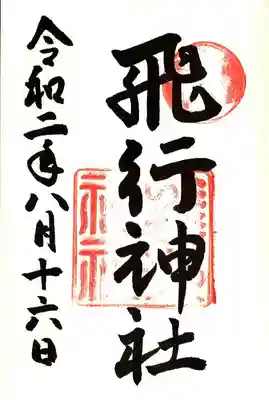 飛行神社
令和二年八月十六日